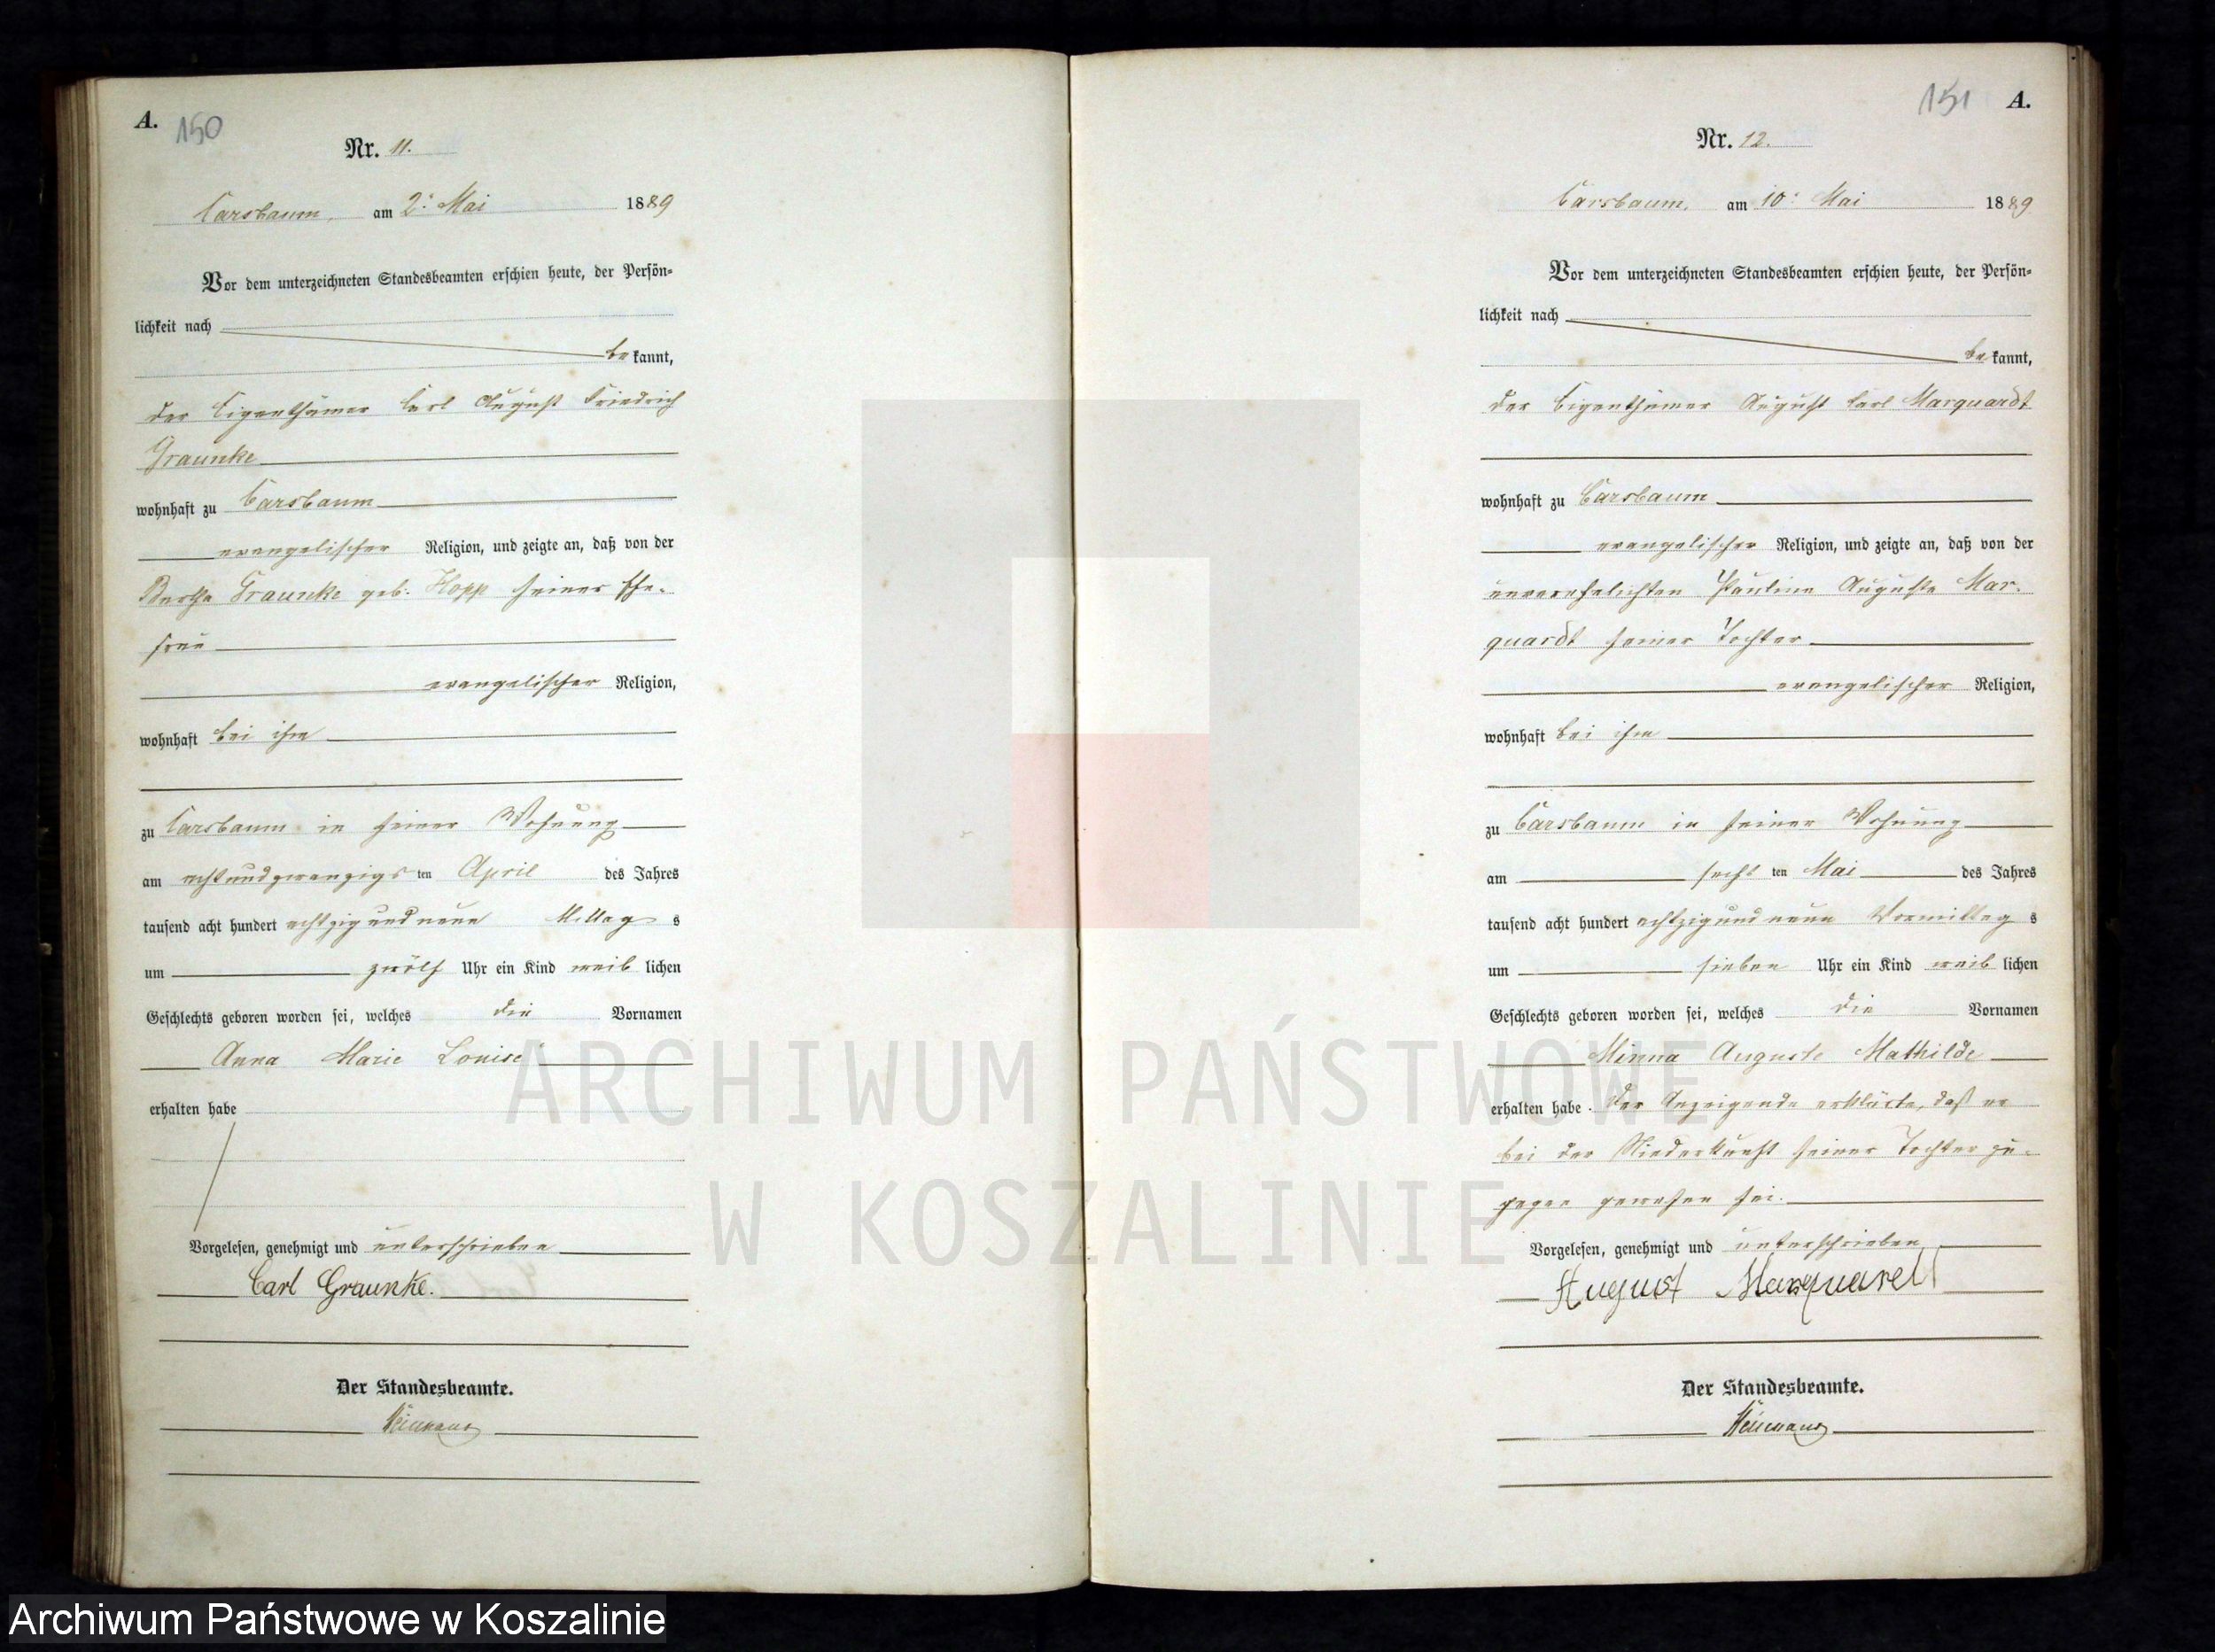 A. 150
Nr. 11.
Carsbaum, am 2. Mai 1889
Vor dem unterzeichneten Standesbeamten erschien heute, der Persön-
lichkeit nach
bekannt,
der Eigenthümer Carl August Friedrich
Graunke
wohnhaft zu Carsbaum
evangelischer Religion, und zeigte an, daß von der
Bertha Graunke geb. Hopp seiner Ehe-
frau
evangelischer Religion,
wohnhaft bei ihm
zu Carsbaum in seiner Wohnung
am achtundzwanzigsten April des Jahres
tausend acht hundert achtzig und neun Mittags
um zwölf Uhr ein Kind weiblichen
Geschlechts geboren worden sei, welches die Vornamen
Anna Marie Louise
erhalten habe
Vorgelesen, genehmigt und unterschrieben
Carl Graunke.
Der Standesbeamte.
151 A.
Nr. 12.
Carsbaum, am 10. Mai 1889
Vor dem unterzeichneten Standesbeamten erschien heute, der Persön-
lichkeit nach
bekannt,
der Eigenthümer August Carl Marquardt
wohnhaft zu Carsbaum
evangelischer Religion, und zeigte an, daß von der
unverehelichten Pauline Auguste Mar-
quardt seiner Tochter
evangelischer Religion,
wohnhaft bei ihm
zu Carsbaum in seiner Wohnung
am sechsten Mai des Jahres
tausend acht hundert achtzig und neun Vormittags
um sieben Uhr ein Kind weiblichen
Geschlechts geboren worden sei, welches die Vornamen
Minna Auguste Mathilde
erhalten habe. Der Anzeigende erklärte, daß er
bei der Niederkunft seiner Tochter zu-
gegen gewesen sei.
Vorgelesen, genehmigt und unterschrieben
August Marquardt
Der Standesbeamte.
ARCHIWUM PAŃSTWOWE
W KOSZALINIE
Archiwum Państwowe w Koszalinie